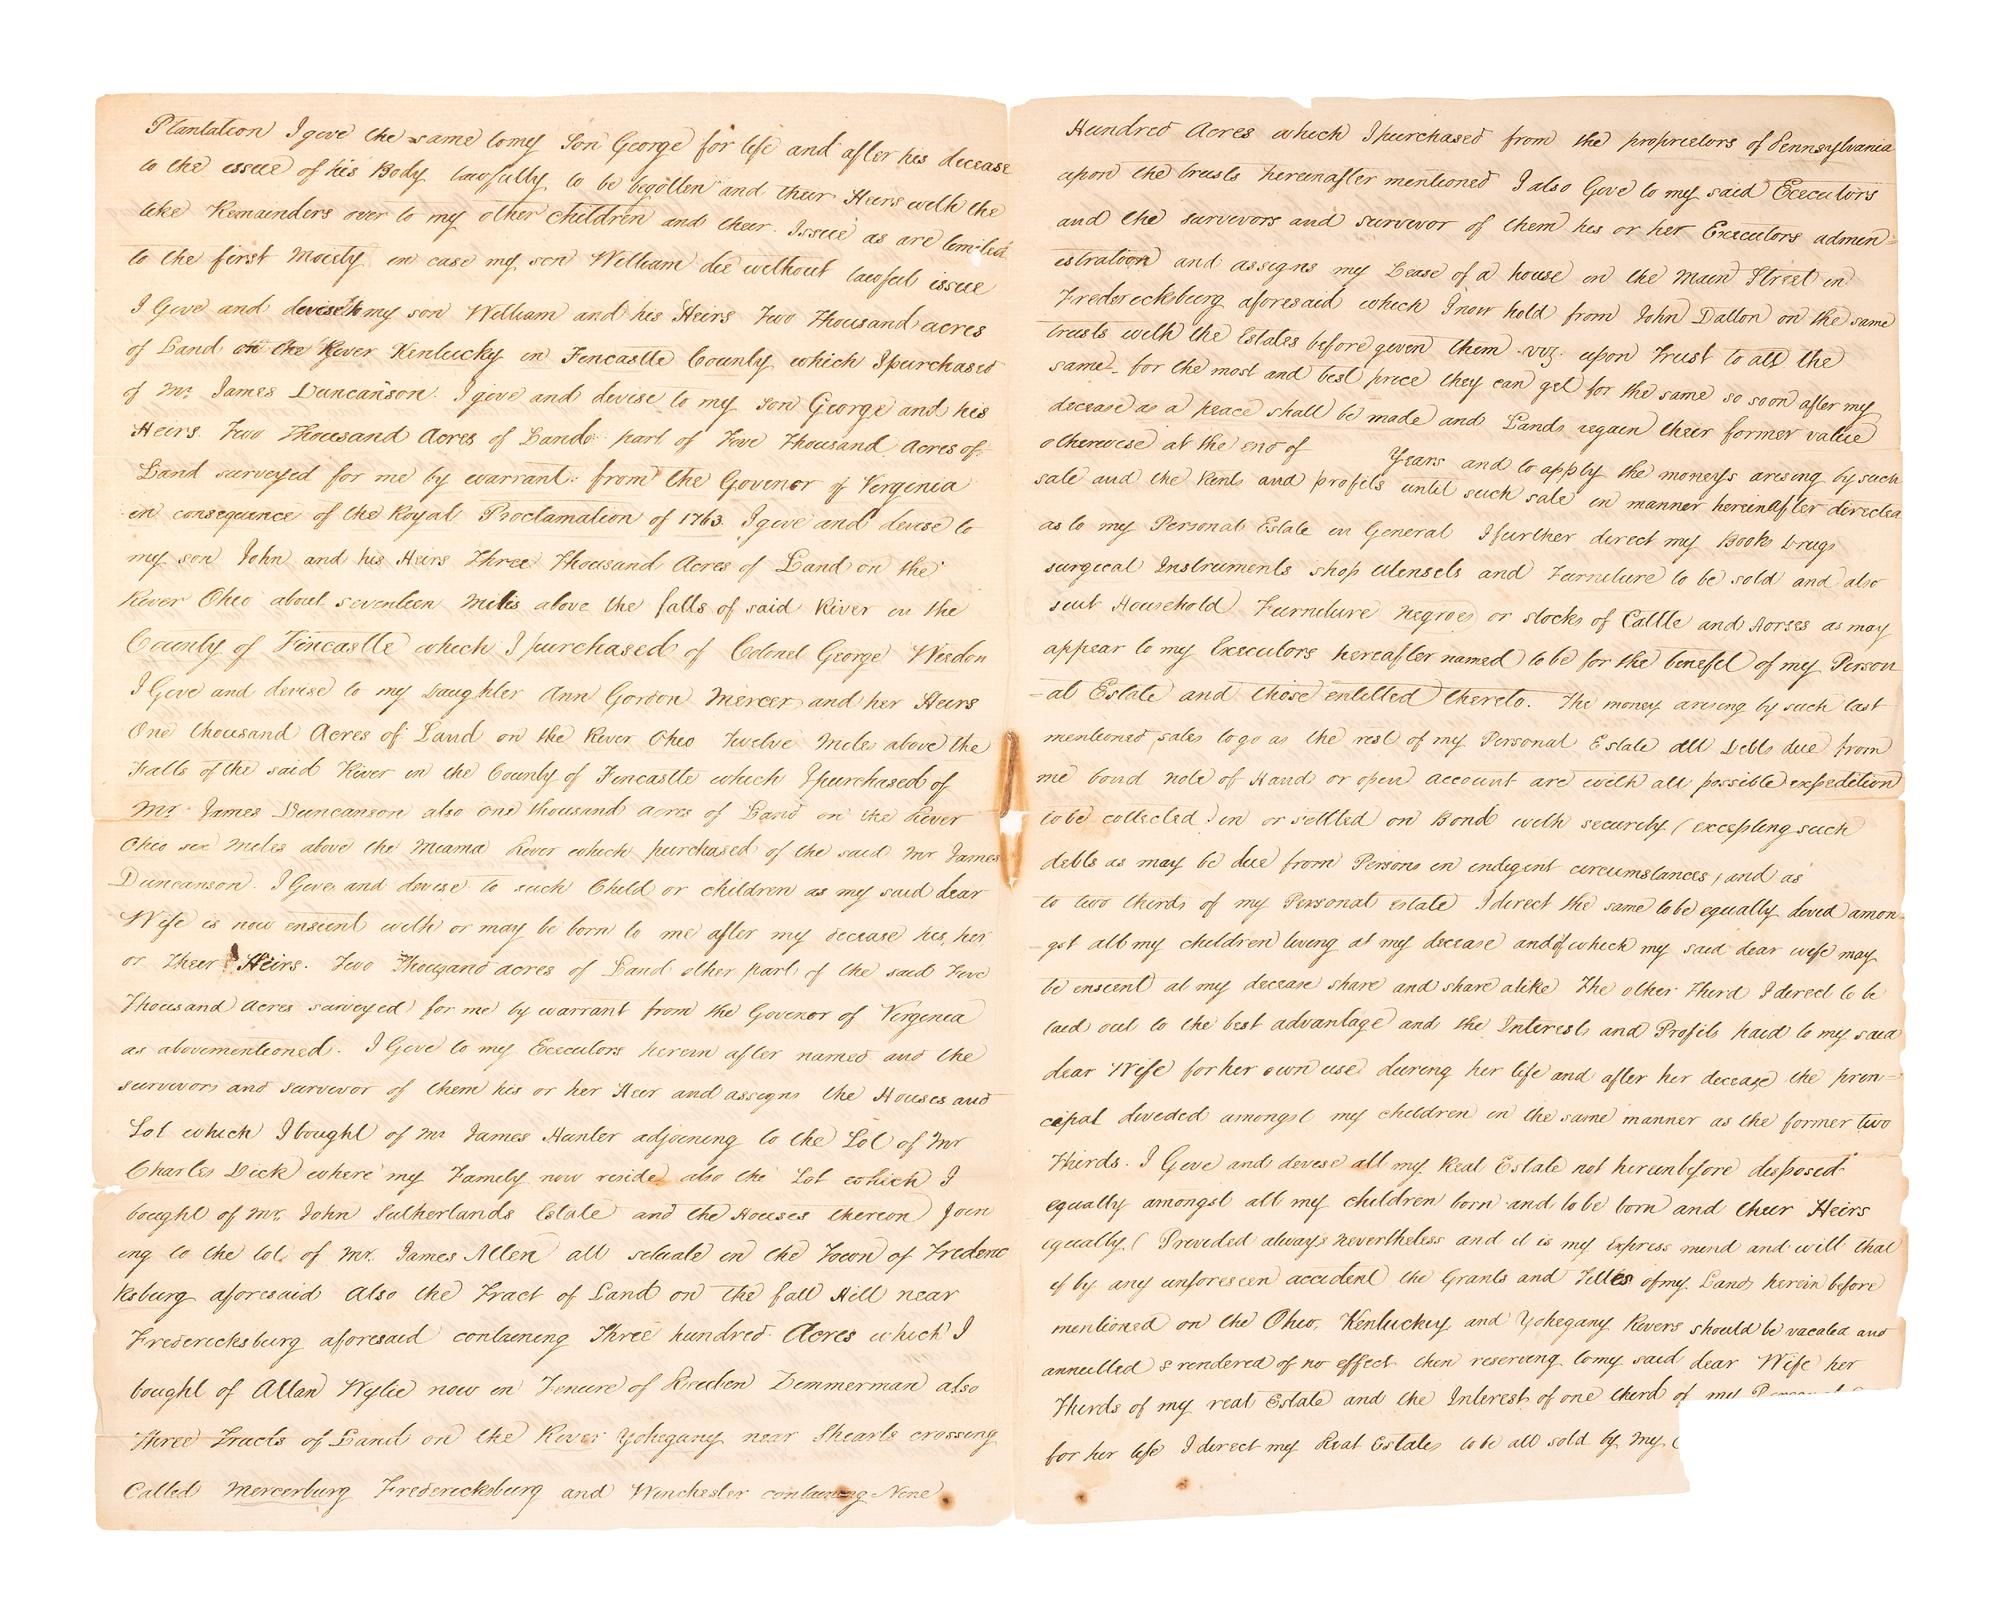 Plantation I give the same to my Son George for life and after his decease
to the issue of his Body lawfully to be begotten and their Heirs with the
like Remainders over to my other children and their Issue as are limited
to the first Moiety in case my son William die without lawful issue
I Give and devise to my son William and his Heirs Two Thousand acres
of Land on the River Kentucky in Fincastle County which I purchased
of Mr. James Duncanson. I give and devise to my son George and his
Heirs Two Thousand Acres of Land part of Five Thousand Acres of
Land surveyed for me by warrant from the Govenor of Virginia
in consequence of the Royal Proclamation of 1763. I give and devise to
my son John and his Heirs Three Thousand Acres of Land on the
River Ohio about seventeen Miles above the falls of said River in the
County of Fincastle which I purchased of Colonel George Weedon
I Give and devise to my Daughter Ann Gordon Mercer and her Heirs
One thousand Acres of Land on the River Ohio Twelve Miles above the
Falls of the said River in the County of Fincastle which I purchased of
Mr. James Duncanson also one thousand acres of Land on the River
Ohio six Miles above the Miama River which purchased of the said Mr James
Duncanson. I Give and devise to such Child or children as my said dear
Wife is now ensient with or may be born to me after my decease his, her
or Their Heirs. Two Thousand acres of Land other part of the said Five
Thousand Acres surveyed for me by warrant from the Govenor of Virginia
as abovementioned. I Give to my Executors herein after named and the
survivors and survivor of them his or her Heir and assigns the Houses and
Lot which I bought of Mr James Hunter adjoining to the Lot of Mr
Charles Dick where my Family now reside also the Lot which I
bought of Mr. John Sutherlands Estate and the Houses thereon join
ing to the lot of Mr. James Allen all situate in the Town of Frederic
ksburg aforesaid Also the Tract of Land on the fall Hill near
Fredericksburg aforesaid containing Three hundred Acres which I
bought of Allan Wylie now in Tenure of Reuben Zimmerman also
Three Tracts of Land on the River Yohogany near Stearls crossing
Called Mercerburg Fredericksburg and Winchester containing Nine
Hundred Acres which I purchased from the proprietors of Pennsylvania
upon the trusts hereinafter mentioned I also Give to my said Executors
and the survivors and survivor of them his or her Executors admin=
istration and assigns my Lease of a house on the Main Street in
Fredericksburg aforesaid which I now hold from John Dalton on the same
trusts with the Estates before given them viz. upon Trust to all the
same for the most and best price they can get for the same so soon after my
decease as a peace shall be made and Lands regain their former value
otherwise at the end of Years and to apply the moneys arising by such
sale and the Rents and profits until such sale in manner hereinafter directed
as to my Personal Estate in General I further direct my Books Drugs
surgical Instruments shop Utensils and Furniture to be sold and also
such Household Furniture negroes or stocks of Cattle and Horses as may
appear to my Executors hereafter named to be for the benefit of my Person
=al Estate and those entitled thereto. The money arising by such last
mentioned sales to go as the rest of my Personal Estate all Debts due from
me bond note of Hand or open account are with all possible expedition
to be collected in or settled on Bond with security (excepting such
debts as may be due from Persons in indigent circumstances) and as
to two thirds of my Personal Estate I direct the same to be equally divied amon
gst all my children living at my decease and of which my said dear wife may
be ensient at my decease share and share alike The other Third I direct to be
laid out to the best advantage and the Interest and Profits paid to my said
dear Wife for her own use during her life and after her decease the prin=
cipal divided amongst my children in the same manner as the former two
Thirds. I Give and devise all my Real Estate not hereinbefore disposed
equally amongst all my children born and to be born and their Heirs
equally (Provided always nevertheless and it is my Express mind and will that
if by any unforeseen accident the Grants and Titles of my Lands herein before
mentioned on the Ohio, Kentuckey and Yohogany Rivers should be vacated and
annulled & rendered of no effect then reserving to my said dear Wife her
Thirds of my real Estate and the Interest of one third of my
for her life I direct my Real Estates to be all sold by my